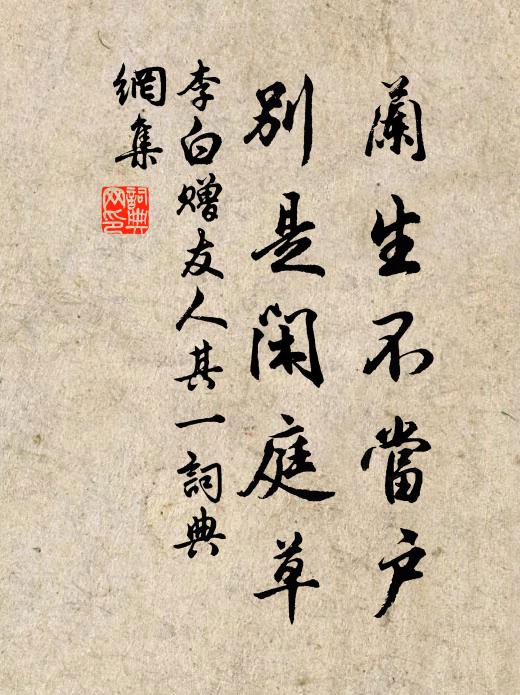 蘭生不當戶
別是閑庭草
李白贈友人其一詞典
網集
詞典
网印